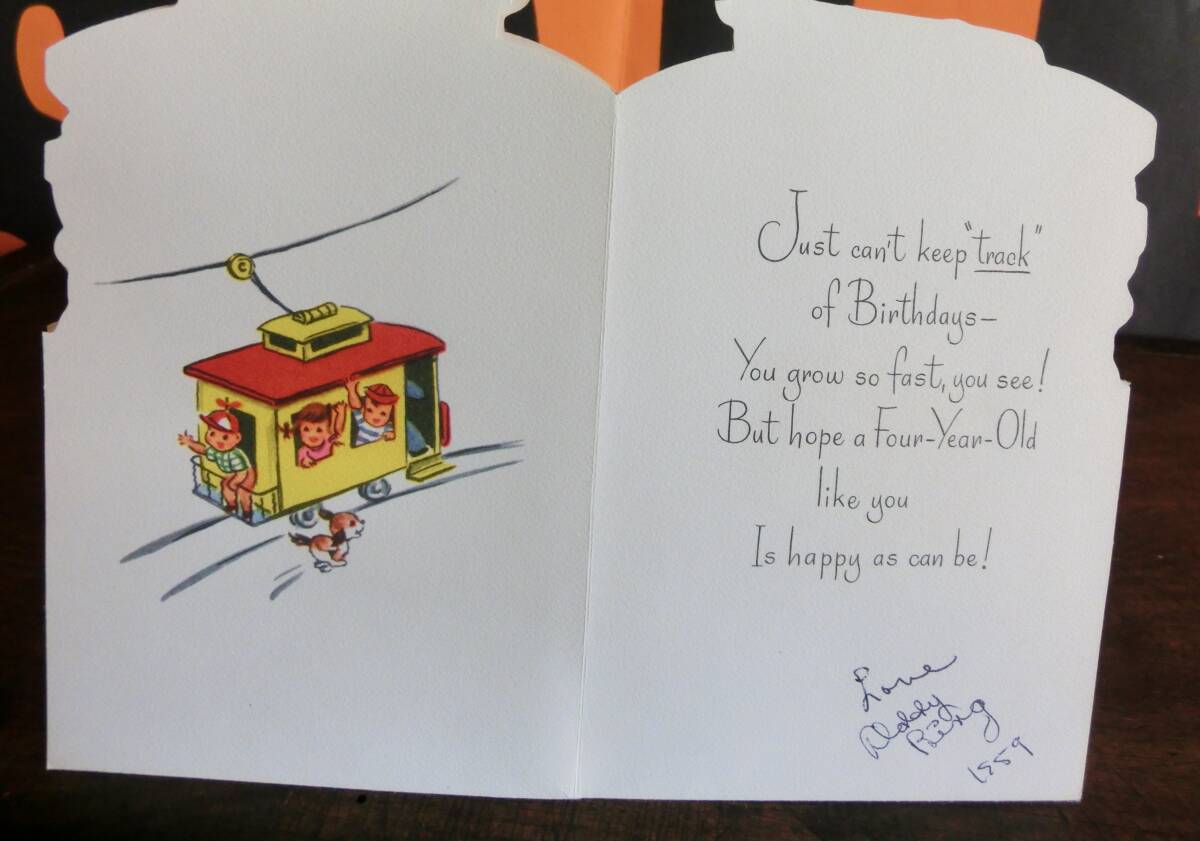 Just can't keep "track"
of Birthdays—
You grow so fast, you see!
But hope a Four-Year-Old
like you
Is happy as can be!
Love
1959